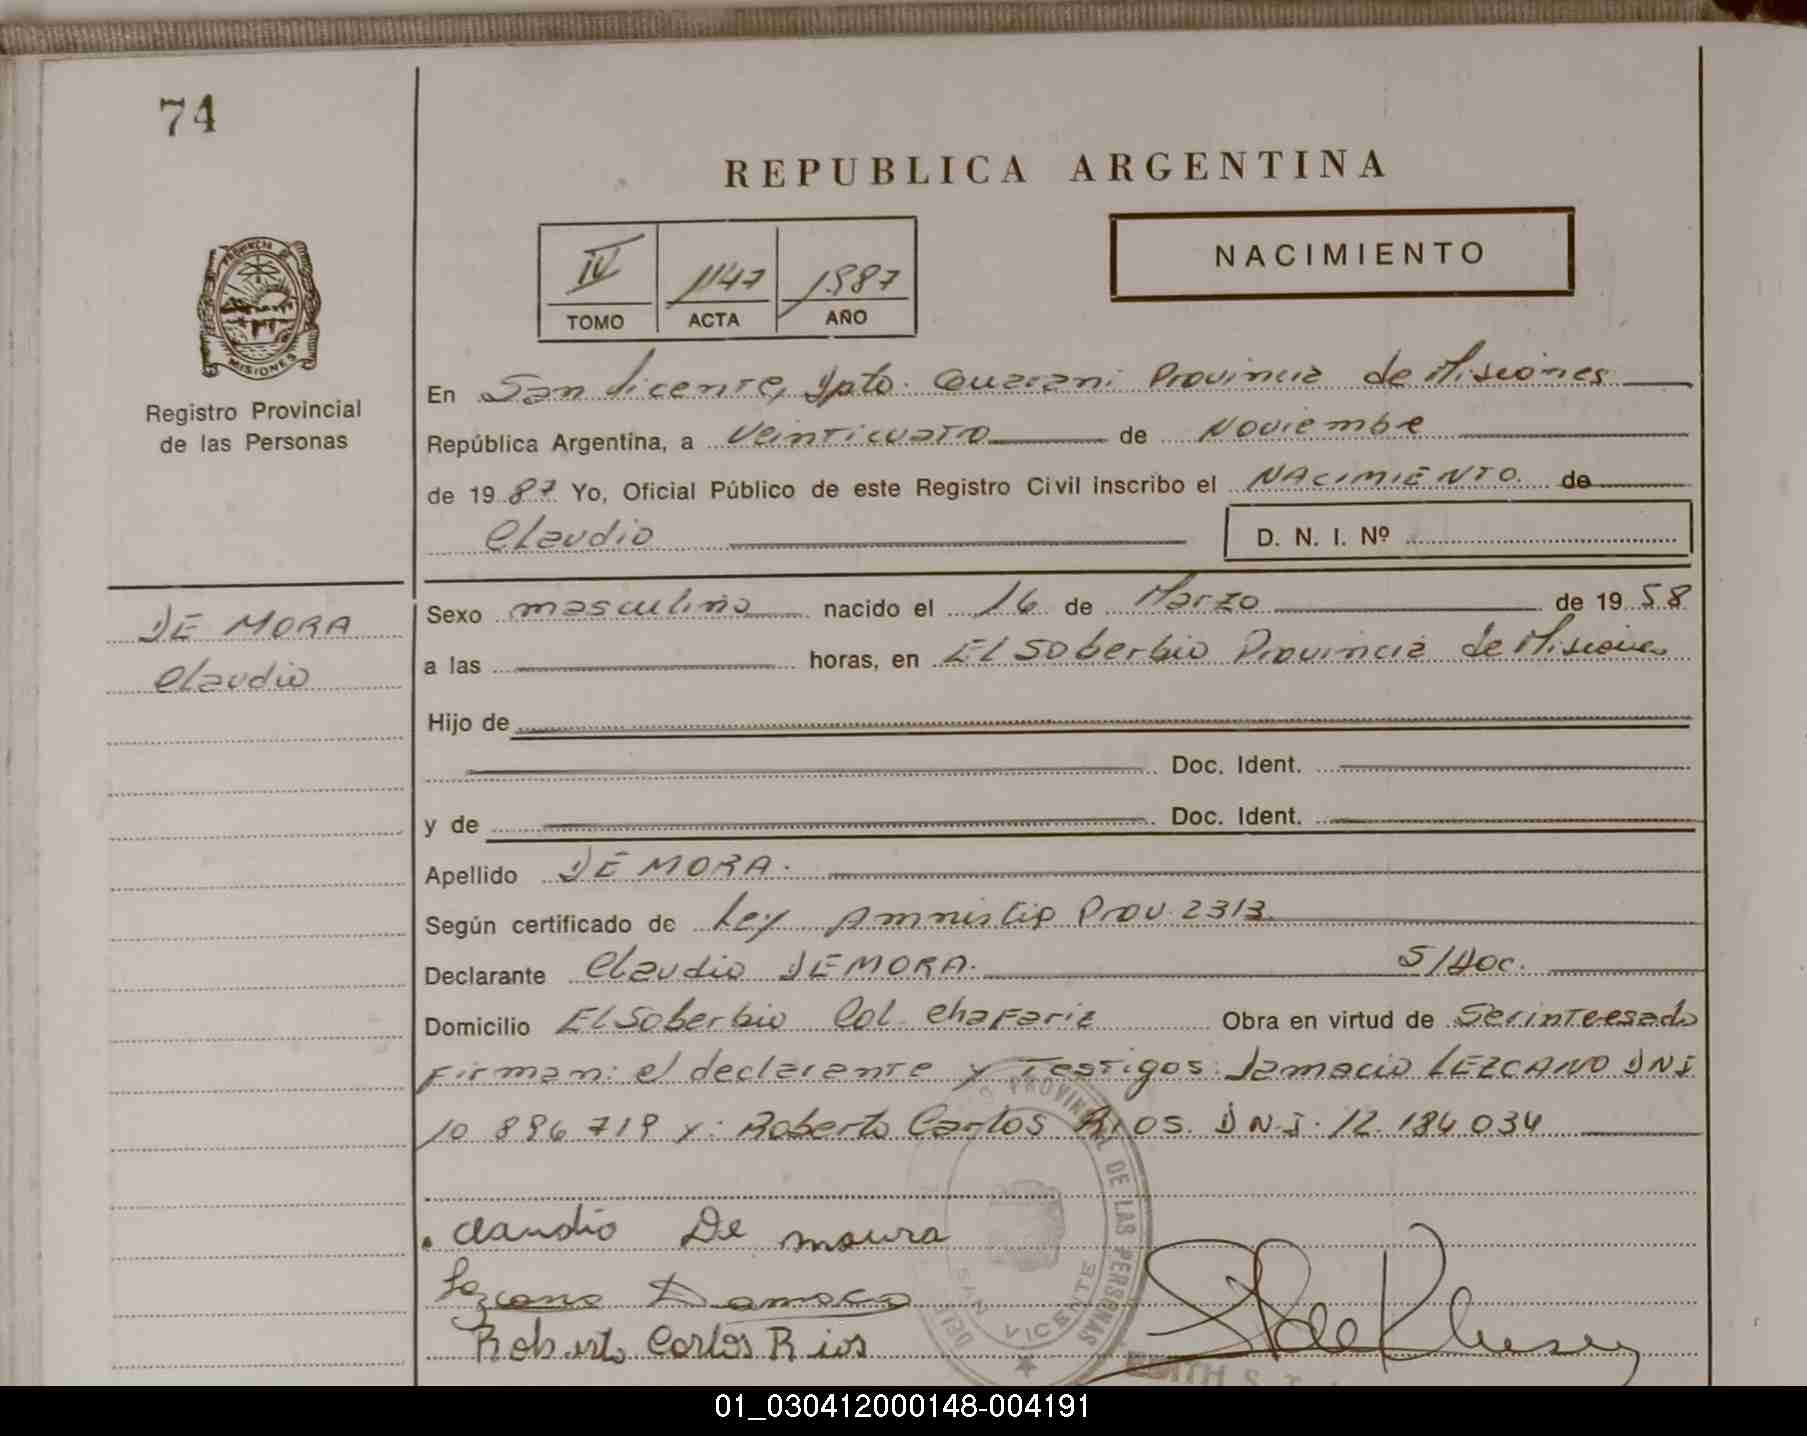 74
REPUBLICA ARGENTINA
NACIMIENTO
IV 1147 1987
TOMO ACTA AÑO
PROVINCIA DE
MISIONES
Registro Provincial
de las Personas
En San Vicente, Dpto. Guarani Provincia de Misiones
República Argentina, a Veinticuatro de Noviembre
de 1987 Yo, Oficial Público de este Registro Civil inscribo el NACIMIENTO de
Claudio D. N. I. Nº
DE MORA
Claudio
Sexo masculino nacido el 16 de Marzo de 1958
a las horas, en El Soberbio Provincia de Misiones
Hijo de
Doc. Ident.
y de Doc. Ident.
Apellido DE MORA.
Según certificado de Ley Amnistia Prov. 2313.
Declarante Claudio DE MORA. S/Doc.
Domicilio El Soberbio Col. Chafariz Obra en virtud de Ser inteesado
Firman: el declarante y Testigos: LEZCANO DNI
10 896 719 y: Roberto Carlos Rios. D.N.I. 12.184.034
Claudio De moura
Lezcano
Roberto Carlos Rios
PROVINCIAL DE LAS PERSONAS
SAN VICENTE
01_030412000148-004191